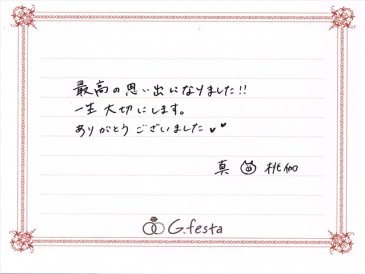 最高の思い出になりました!!
一生大切にします。
ありがとうございました♥♥
真 桃伽
G.festa